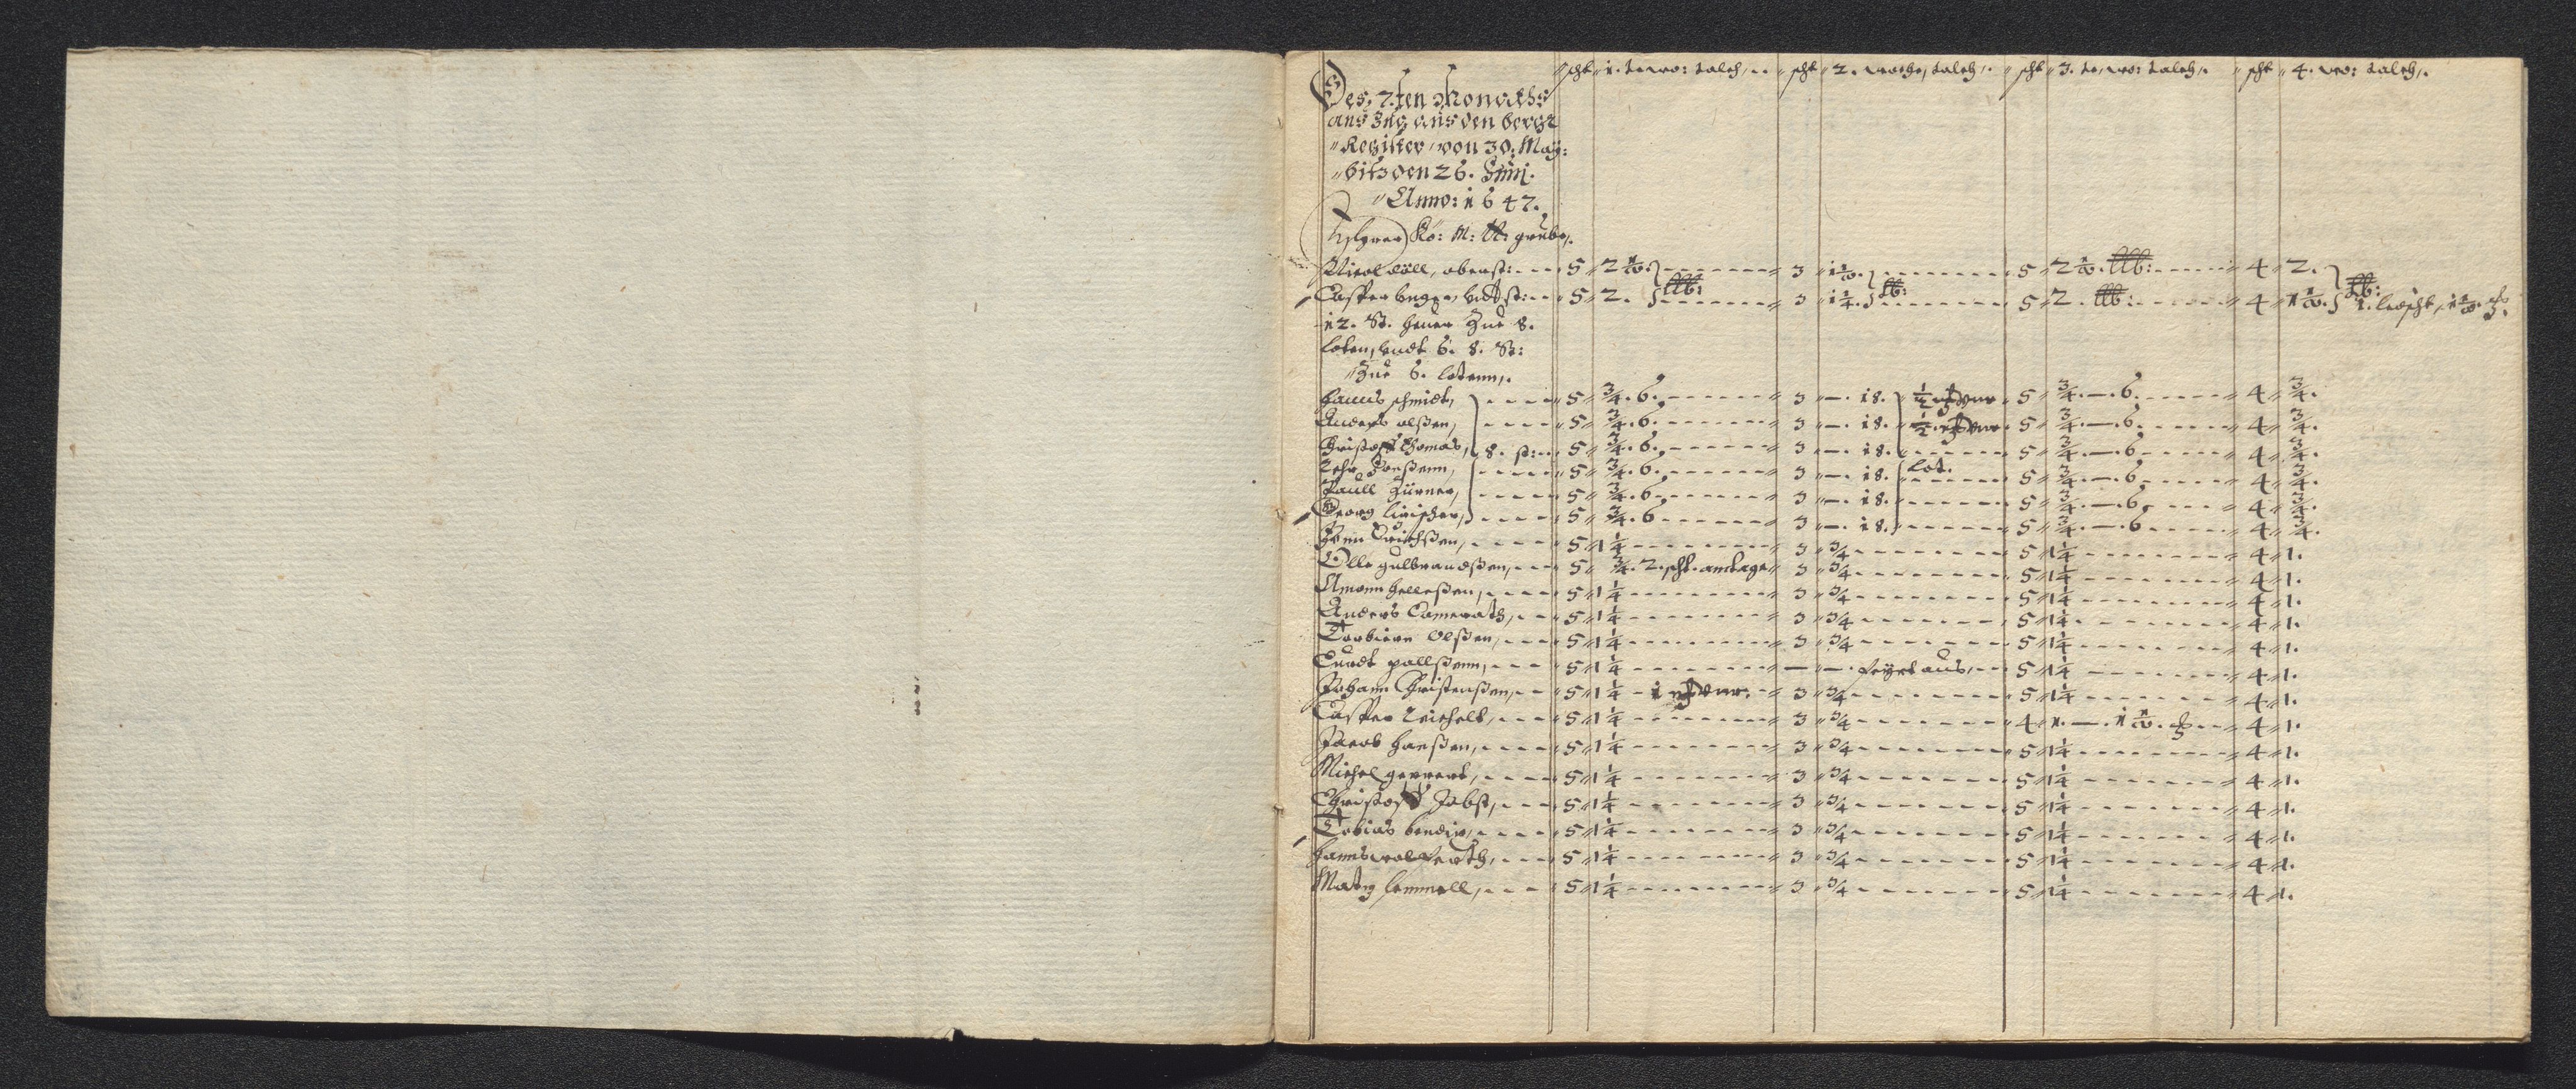 scht 1. te wo: taleh, scht 2. woche, taleh, scht 3. te, wo: taleh, scht 4. wo: taleh,
Des 7.ten Monaths
aus Zug aus den bergk
Register, von 30. Maÿ:
bitz den 26. Junij.
Anno: 1647.
Kö: M: St: grube,
Nicol döll, oberst: 5 2 3 5 2 4 2.
Casper 5 2. 3 1¼. 5 2. 4
12. St. heuer Zue 8.
loten, undt 6. 8. St:
Zue 6. lotenn,
Hanns schmidt, 5 ¾. 6. 3 —. 18. ½ 5 ¾. —. 6. 4 ¾.
Anders olßen, 5 ¾. 6. 3 —. 18. ½. 5 ¾. —. 6. 4 ¾.
Christoff Thomas, 8. st: 5 ¾. 6. 3 —. 18. 5 ¾. —. 6. 4 ¾.
5 ¾. 6. 3 —. 18. lot. 5 ¾. —. 6. 4 ¾.
Paull Zürner, 5 ¾. 6. 3 —. 18. 5 ¾. —. 6. 4 ¾.
Georg 5 ¾. 6 3 —. 18. 5 ¾. —. 6 4 ¾.
5 1¼ 3 ¾ 5 1¼ 4 1.
Olle gulbrandßen, 5 ¾. 2. scht. 3 ¾ 5 1¼ 4 1.
Amonn helleßen, 5 1¼ 3 ¾ 5 1¼ 4 1.
Anders Camerath, 5 1¼ 3 ¾ 5 1¼ 4 1.
Torbiern Olßen, 5 1¼ 3 ¾ 5 1¼ 4 1.
Curdt pallßenn, 5 1¼ — —. feyret aus, 5 1¼ 4 1.
Johann Christenßen, 5 1¼ 1 3 ¾ 5 1¼ 4 1.
Casper reichelt, 5 1¼ 3 ¾ 4 1. — 4 1.
Jacob hanßen, 5 1¼ 3 ¾ 5 1¼ 4 1.
Michel gerrert, 5 1¼ 3 ¾ 5 1¼ 4 1.
Christoff Jobst, 5 1¼ 3 ¾ 5 1¼ 4 1.
Tobias bendix, 5 1¼ 3 ¾ 5 1¼ 4 1.
Hanns 5 1¼ 3 ¾ 5 1¼ 4 1.
Matz lemmell, 5 1¼ 3 ¾ 5 1¼ 4 1.